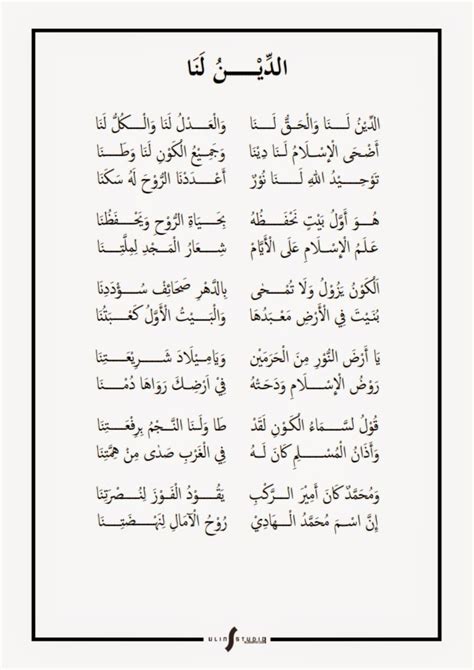 الدِّيْنُ لَنَا
الدِّيْنُ لَنَا وَالْحَقُّ لَنَا وَالْعَدْلُ لَنَا وَالْكُلُّ لَنَا
أَضْحَى الْإِسْلَامُ لَنَا دِيْنَا وَجَمِيْعُ الْكَوْنِ لَنَا وَطَنَا
تَوْحِيْدُ اللهِ لَنَا نُوْرٌ أَعْدَدْنَا الرُّوْحَ لَهُ سَكَنَا
هُوَ أَوَّلُ بَيْتٍ نَحْفَظُهُ بِحَيَاةِ الرُّوْحِ وَيَحْفَظُنَا
عَلَمُ الْإِسْلَامِ عَلَى الْأَيَّامِ شِعَارُ الْمَجْدِ لِمِلَّتِنَا
اَلْكَوْنُ يَزُوْلُ وَلَا تُمْحٰى بِالدَّهْرِ صَحَائِفُ سُؤْدَدِنَا
بُنَيَتْ فِي الْأَرْضِ مَعَبَدُهَا وَالْبَيْتُ الْأَوَّلُ كَعْبَتُنَا
يَا أَرْضَ النُّوْرِ مِنَ الْحَرَمَيْنِ وَيَامِيْلَادَ شَرِيْعَتِنَا
رَوْضُ الْإِسْلَامِ وَدَحْتُهُ فِيْ أَرْضِكِ رَوَاهَا دُمْنَا
قُوْلُ لسَّمَاءُ الْكَوْنِ لَقَدْ طَا وَلَنَا النَّجْمُ بِرِفْعَتِنَا
وَأَذَانُ الْمُسْلِمِ كَانَ لَهُ فِي الْغَرْبِ صَدٰى مِنْ هِمَّتِنَا
وَمُحَمَّدُ كَانَ أَمِيْرَ الرَّكْبِ يَقُوْدُ الْفَوْزَ لِنُصْرَتِنَا
إِنَّ اسْمَ مُحَمَّدُ الْهَادِيْ رُوْحُ الْآمَالِ لِنَهْضَتِنَا
ULIN STUDIO